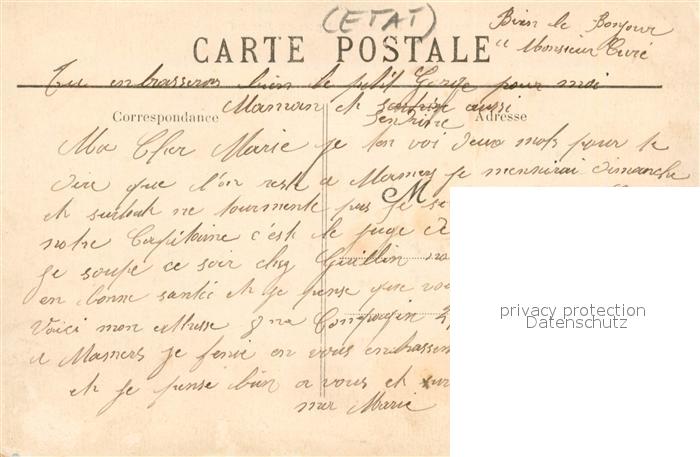 (ETAT)
Bien le Bonjour
a Monsieur Curé
CARTE POSTALE
Tu enbrasseras bien le petit pour moi
Maman et aussi
Correspondance
Adresse
Ma Cher Marie je ten voi deux mots pour te
dire que l'on reste a Mamers je mennirai dimanche
et surtout ne tourmente pas je se
M
notre Capitaine c'est le juge de
Je soupe ce soir chez Guillin no
en bonne santé et je pense que vou
Voici mon adresse Compagnie
a Mamers je fenie en vous enbrassen
et je pense bien a vous et sur
mer Marie
privacy protection
Datenschutz